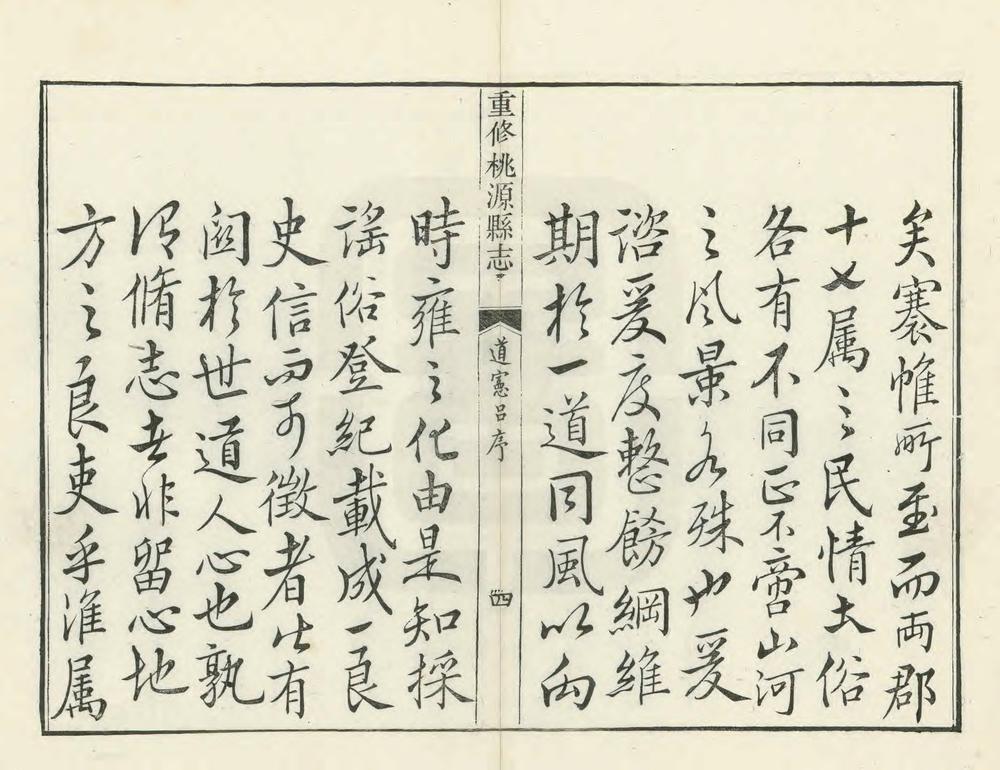 矣褰帷所至而両郡
十乂属之民情土俗
各有不同正不啻山河
之风景各殊也爰
諮爰度整飭綱維
期於一道同風以向
重修桃源縣志
道憲呂序
四
時雍之化由是知採
謡俗登紀載成一良
史信而可徵者片有
関於世道人心也孰
谓脩志者非留心地
方之良吏乎淮属